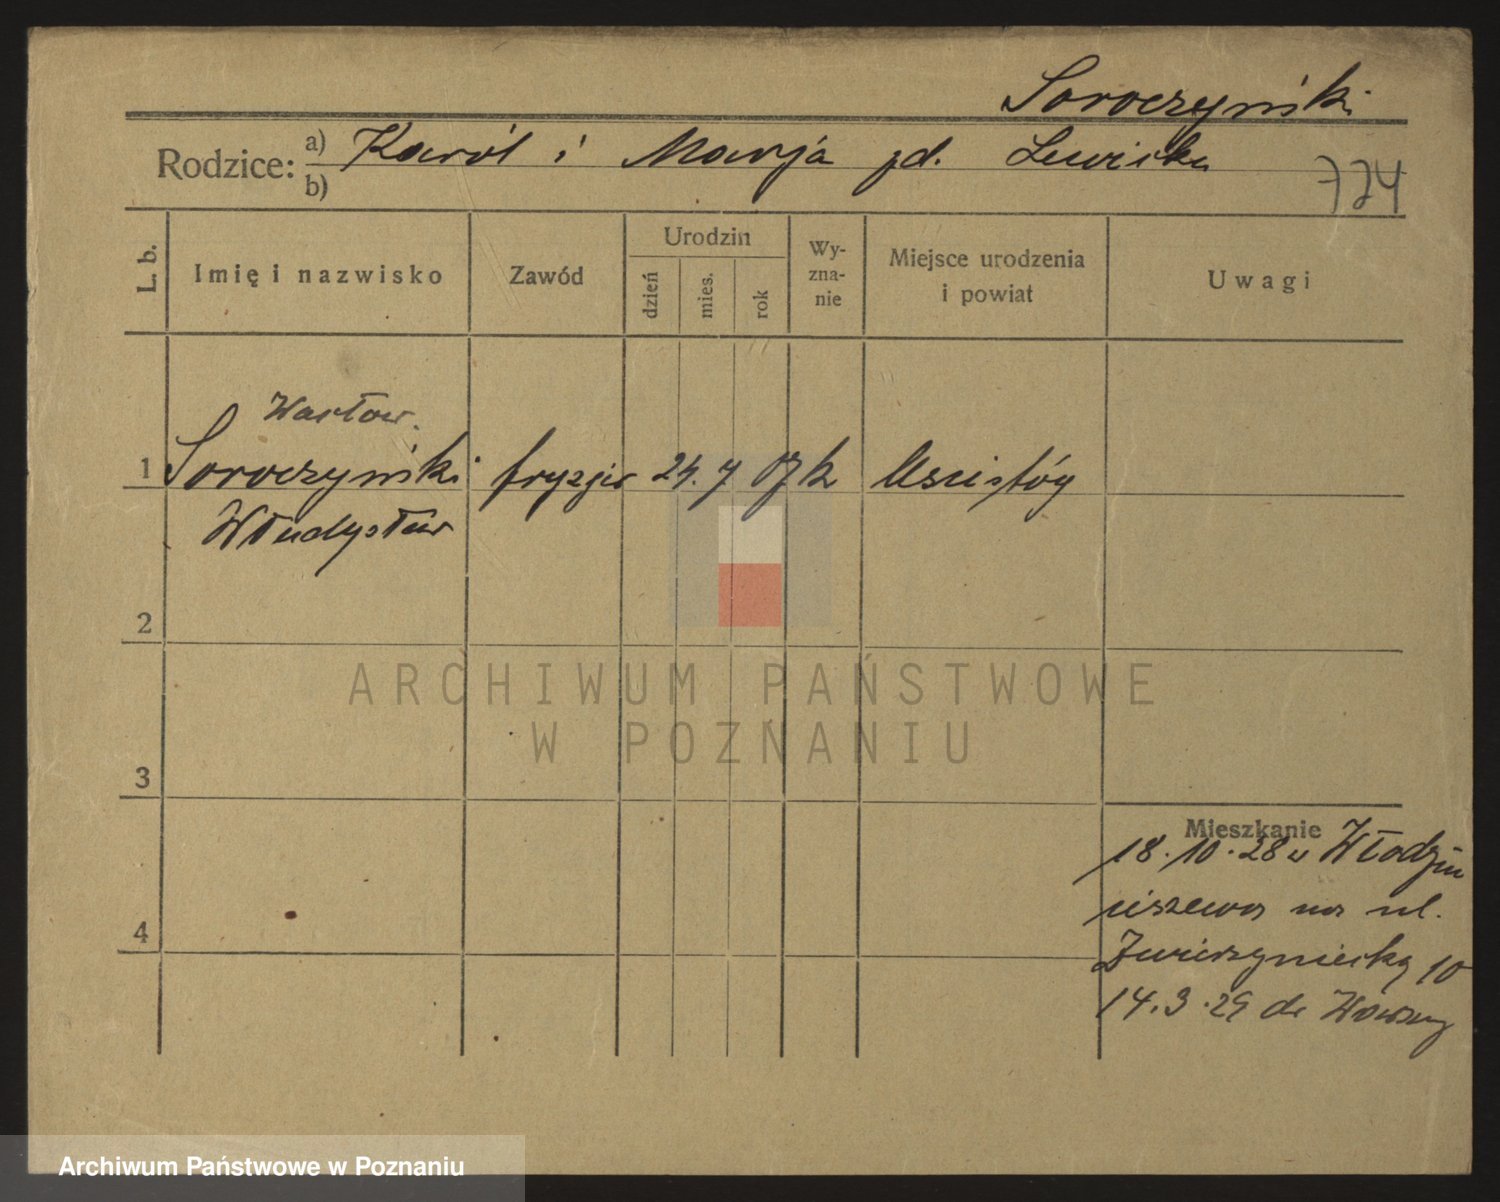 Soroczyński
Rodzice: a) Karól i Marja zd. Lewicka
b)
724
L. b.
Imię i nazwisko
Zawód
Urodzin
dzień
mies.
rok
Wy-
zna-
nie
Miejsce urodzenia
i powiat
Uwagi
Wacław.
1 Soroczyński fryzjer 24. 7 07 k Uściług
Władysław
2
3
4
Mieszkanie
18.10.28 z Włodzim
ierzewa na ul.
Zwierzyniecką 10
14.3.29 do Warszawy
ARCHIWUM PAŃSTWOWE
W POZNANIU
Archiwum Państwowe w Poznaniu